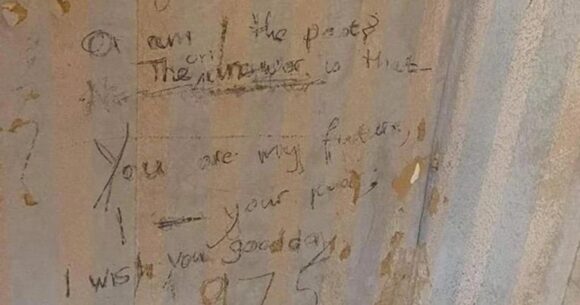 Or am I the past?
The only answer is that
You are my future,
I your past,
I wish you good day
1975